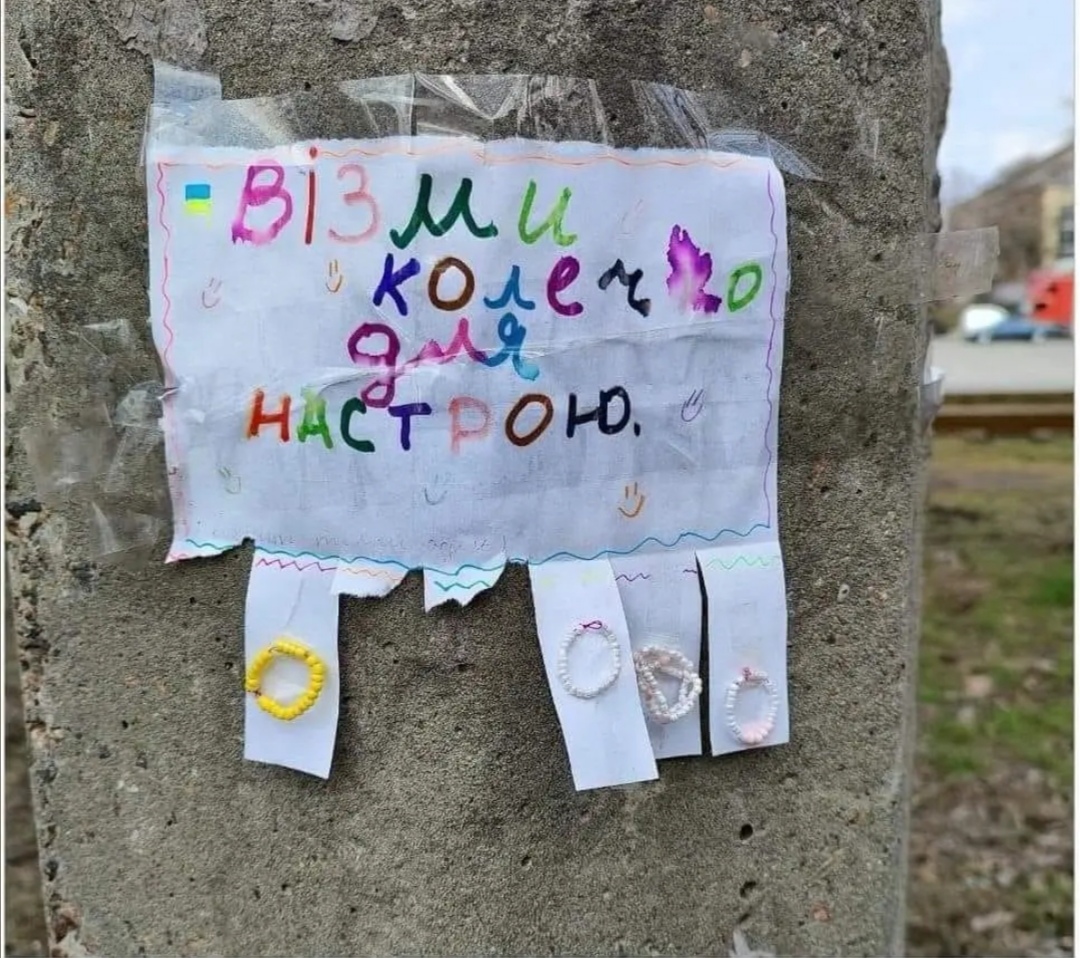 Візми
колечко
для
настрою.